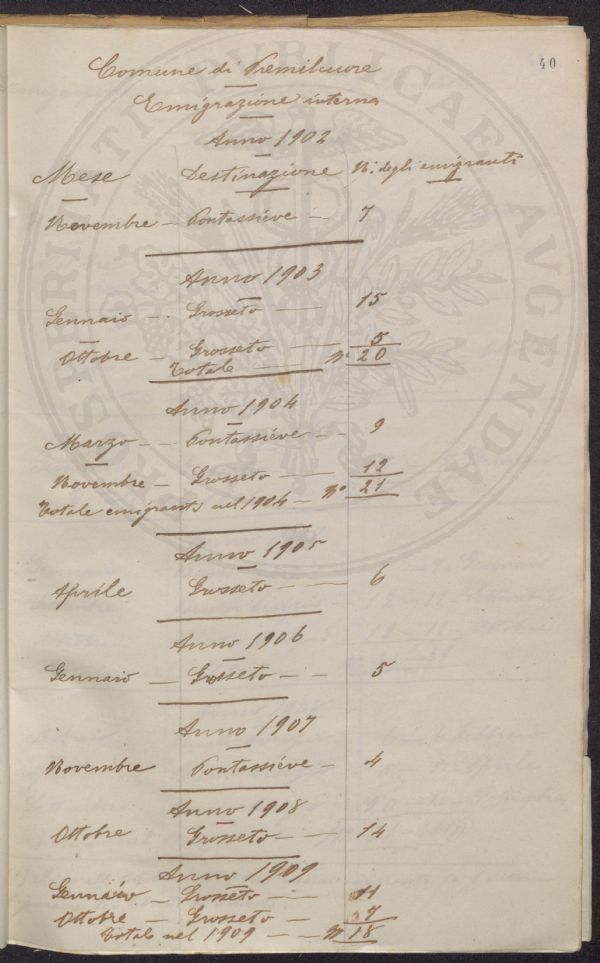 40
Comune di Premilcuore
Emigrazione interna
Anno 1902
Mese Destinazione N. degli emigranti
Novembre — Pontassiéve — 7
Anno 1903
Gennaio — Grosseto — 15
Ottobre — Grosseto — 5
Totale — N° 20
Anno 1904
Marzo — Pontassiéve — 9
Novembre — Grosseto — 12
Totale emigranti nel 1904 — N° 21
Anno 1905
Aprile Grosseto — 6
Anno 1906
Gennaio — Grosseto — 5
Anno 1907
Novembre Pontassiéve — 4
Anno 1908
Ottobre Grosseto — 14
Anno 1909
Gennaio — Grosseto — 11
Ottobre — Grosseto — 7
Totale nel 1909 — N° 18
PROSPERITATI PVBLICAE AVGENDAE